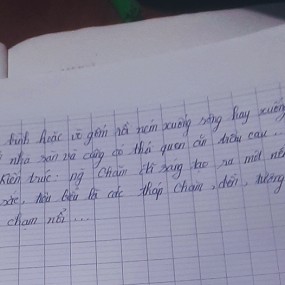 bình hoặc vò gốm rồi ném xuống sông hay xuống
nhà sàn và cũng có thói quen ăn trầu cau ...
Kiến trúc: ng Chăm đã sáng tạo ra một nền
sắc, tiêu biểu là các tháp Chăm, đền, tượng
chăm nổi ...